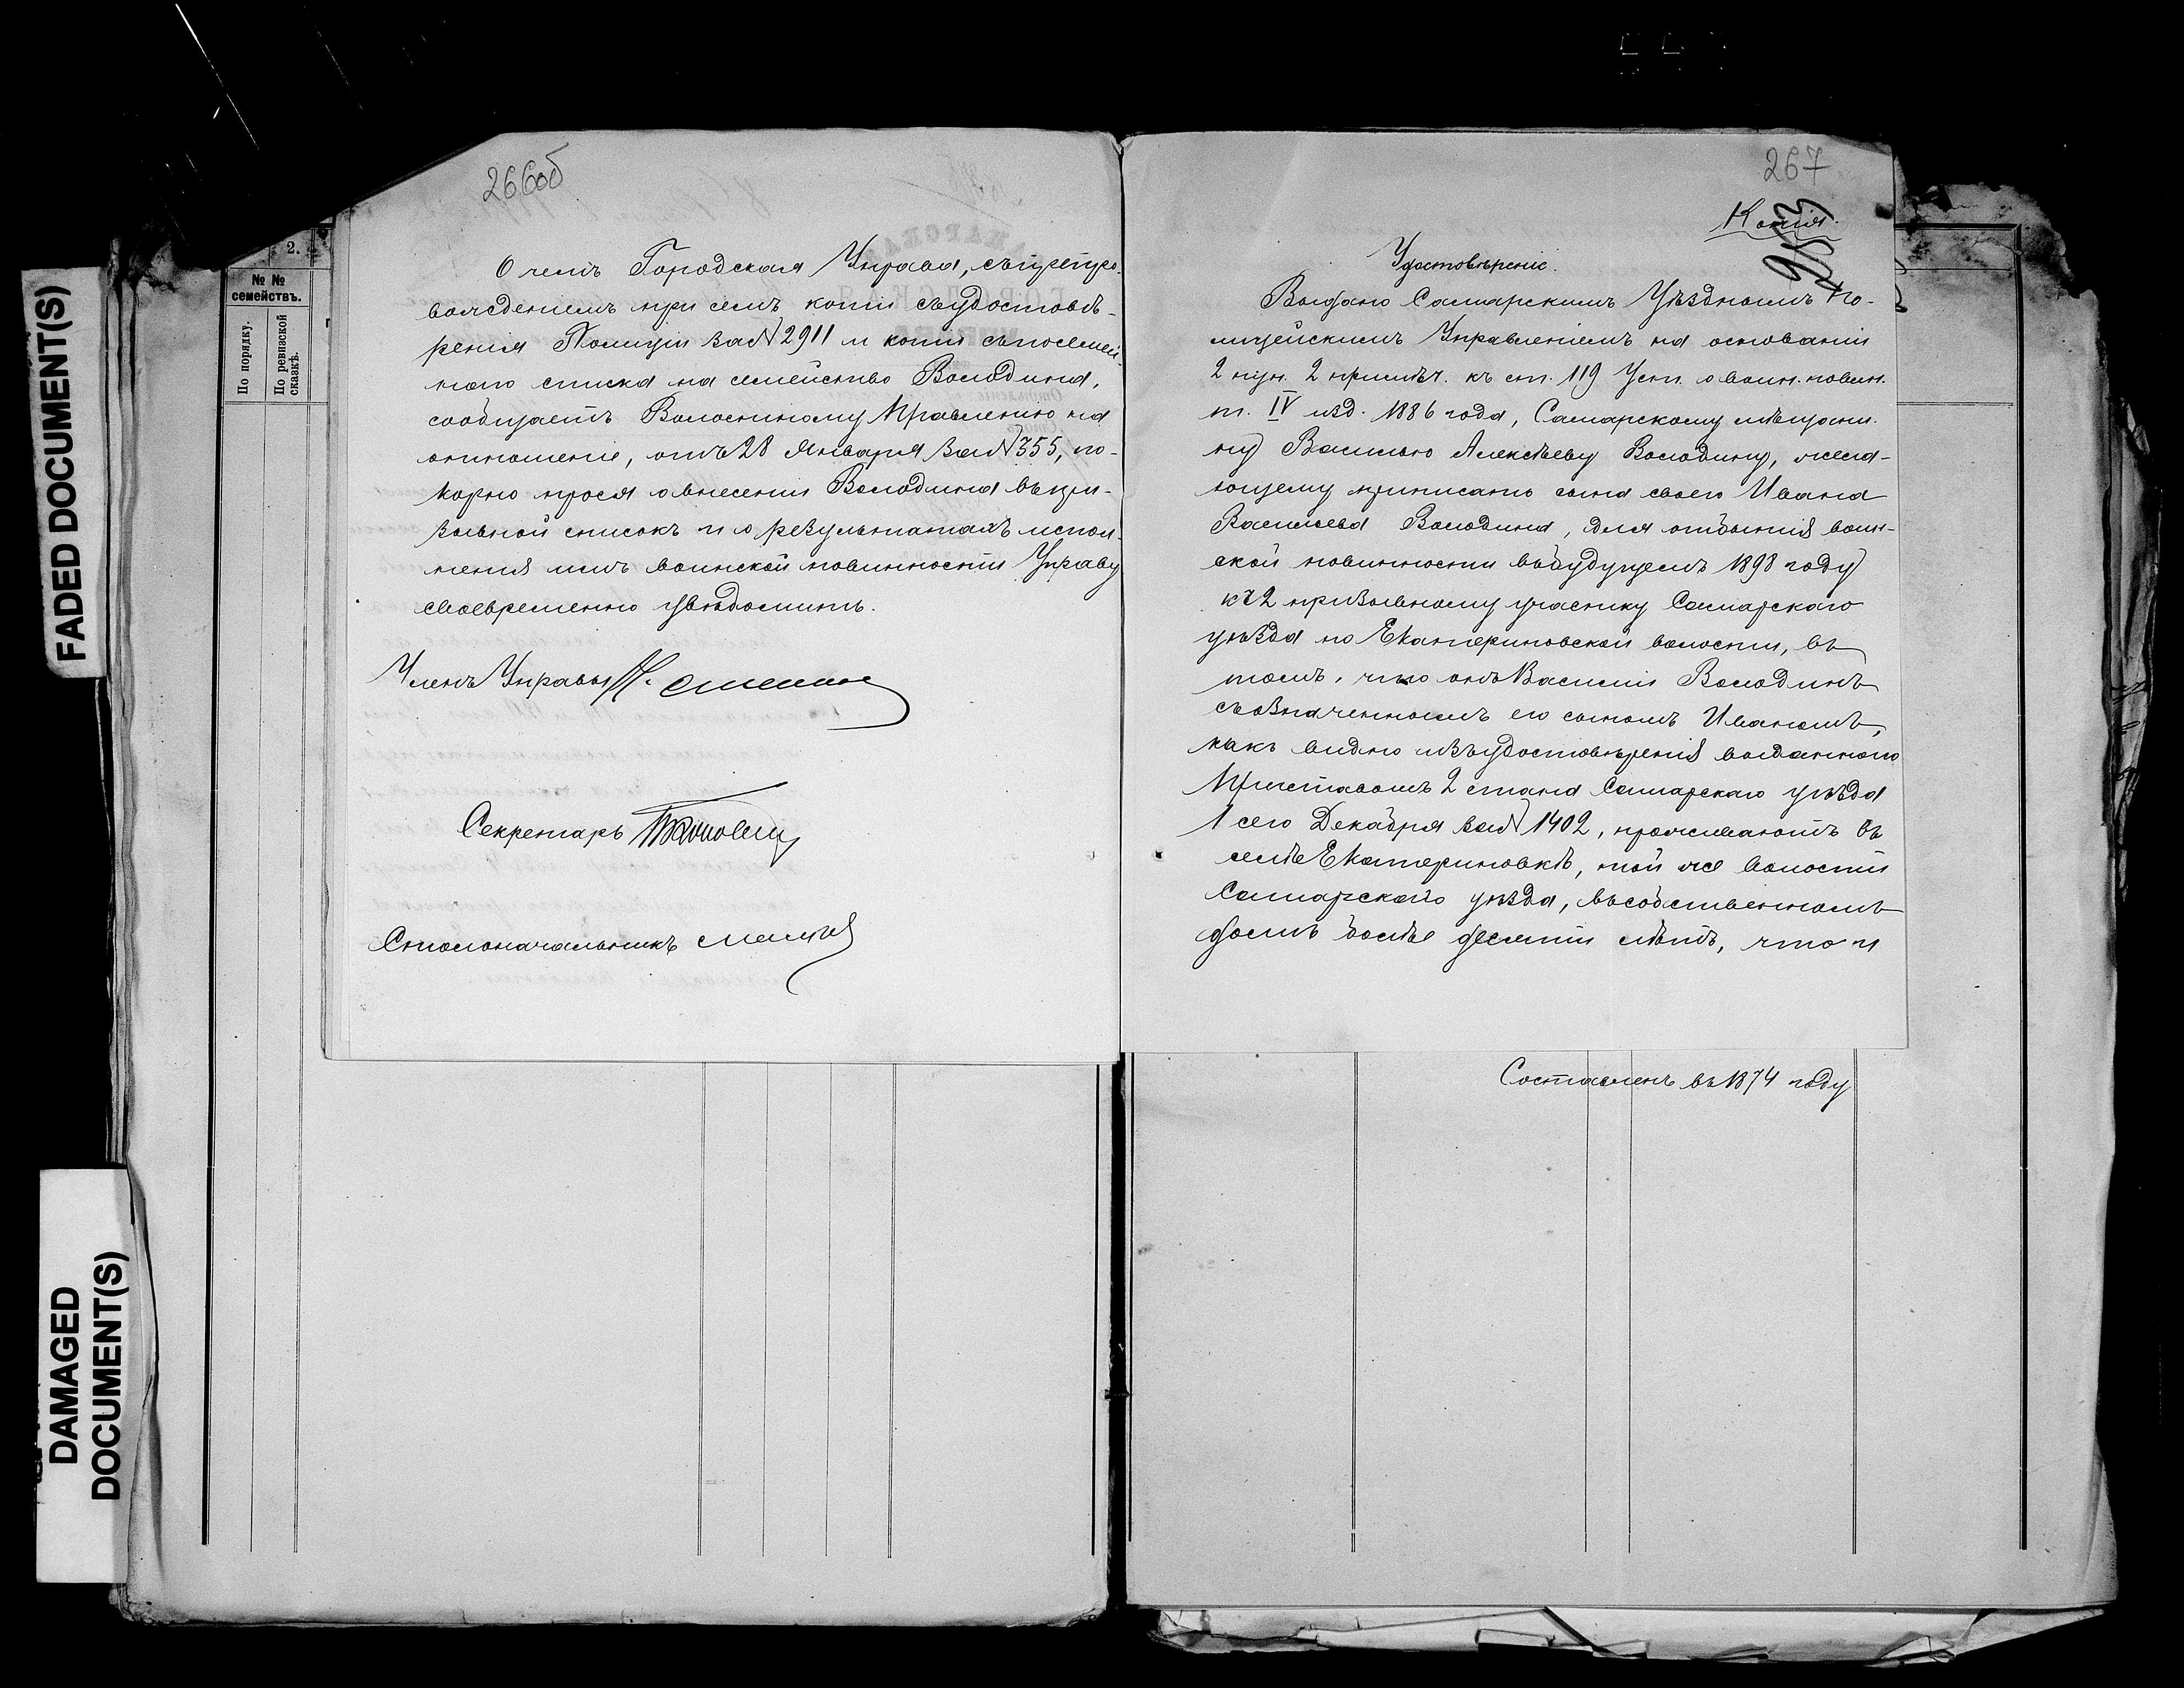 FADED DOCUMENT(S)
DAMAGED
DOCUMENT(S)
2.
№ №
семействъ.
По порядку.
По ревизской
сказкѣ.
266об
О чемъ Городская Управа, съ препро-
вожденіемъ при семъ копіи съ удостовѣ-
ренія Полиціи за № 2911 и копіи съ посемей
наго списка на семейство Володина,
сообщаетъ Волостному Правленію на
отношеніе, отъ 28 Января за № 355, по-
корно прося о внесеніи Володина въ при-
зывной списокъ и о результатахъ испол-
ненія имъ воинской повинности Управу
своевременно увѣдомить.
Членъ Управы
Секретарь
Столоначальникъ
267
Копія.
Удостовѣреніе.
Выдано Самарскимъ Уѣзднымъ По-
лицейскимъ Управленіемъ на основаніи
2 пун. 2 примѣч. къ ст. 119 Уст. о воин. повин.
т. IV изд. 1886 года, Самарскому мѣщани-
ну Василью Алексѣеву Володину, жела-
ющему приписать сына своего Ивана
Васильева Володина, для отбытія воин-
ской повинности въ будущемъ 1898 году
къ 2 призывному участку Самарскаго
уѣзда по Екатериновской волости, въ
томъ, что онъ Василій Володинъ
съ означеннымъ его сыномъ Иваномъ,
какъ видно изъ удостовѣренія выданнаго
Приставомъ 2 стана Самарскаго уѣзда
1 сего Декабря за № 1402, проживаютъ въ
селѣ Екатериновкѣ, той же волости
Самарскаго уѣзда, въ собственномъ
домѣ болѣе десяти лѣтъ, что и
Составленъ въ 1874 году